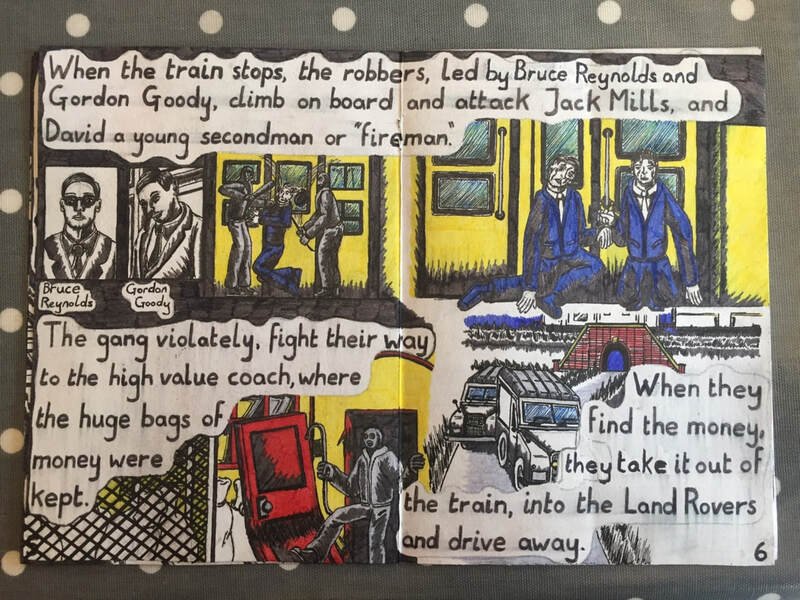 When the train stops, the robbers, led by Bruce Reynolds and
Gordon Goody, climb on board and attack Jack Mills, and
David a young secondman or "fireman."
Bruce
Reynolds
Gordon
Goody
The gang violately, fight their way
to the high value coach, where
the huge bags of
money were
kept.
When they
find the money,
they take it out of
the train, into the Land Rovers
and drive away.
5
6